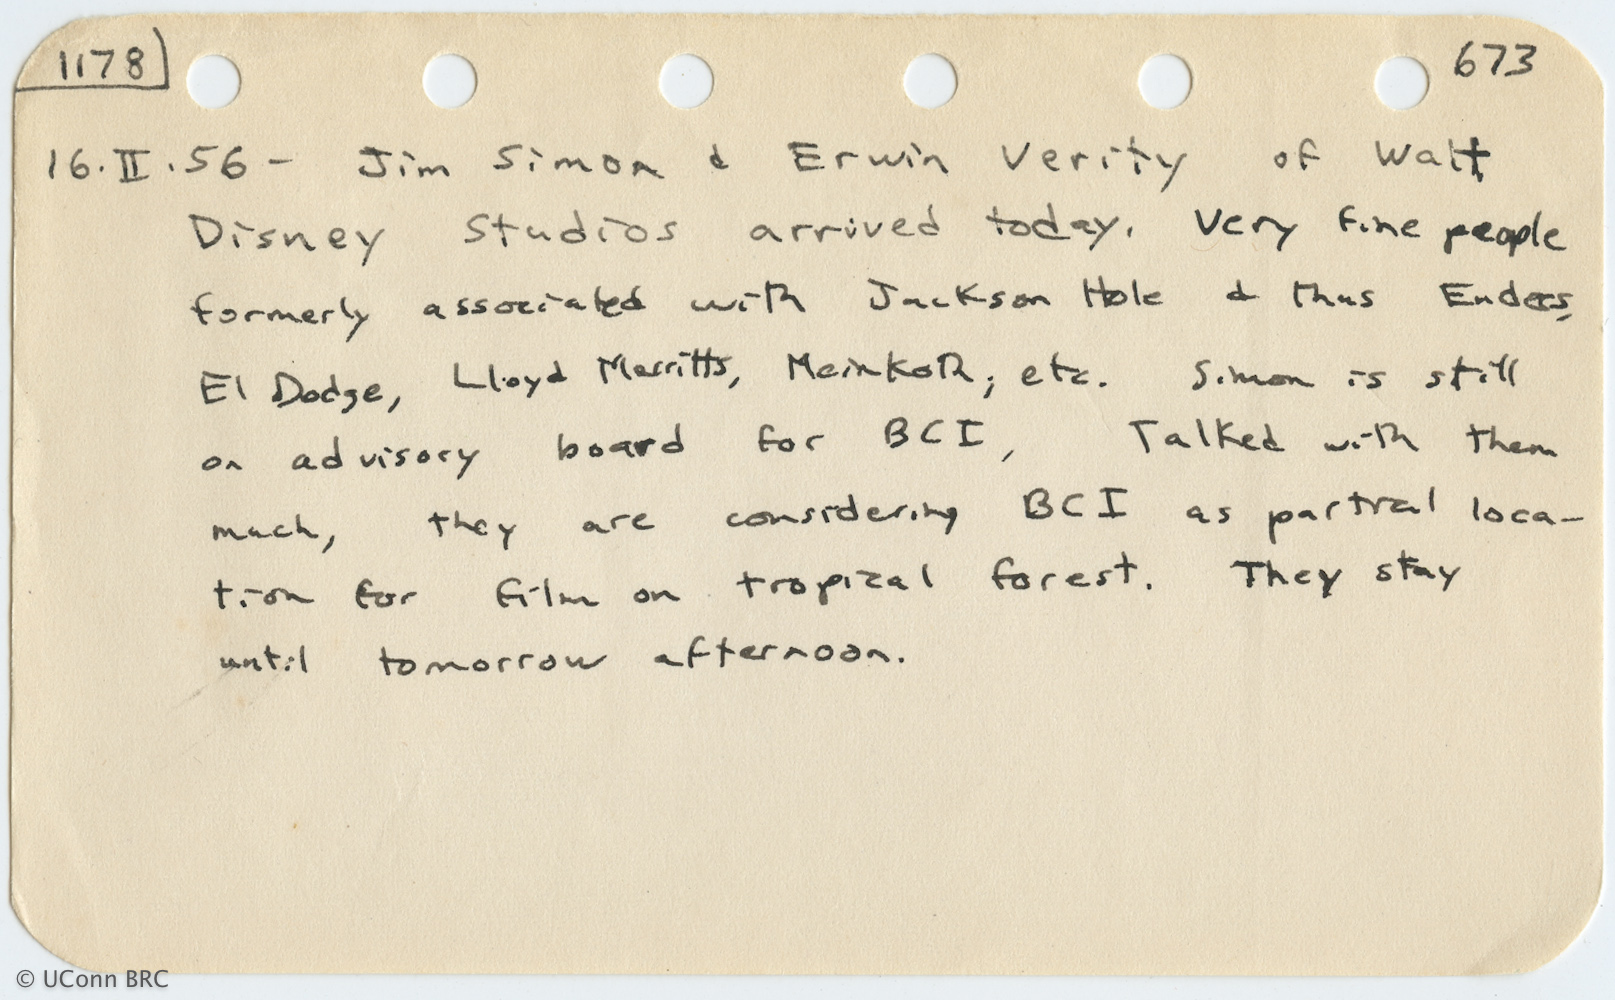 1178
673
16.II.56 - Jim Simon & Erwin Verity of Walt
Disney Studios arrived today. Very fine people
formerly associated with Jackson Hole & thus Enders,
El Dodge, Lloyd Merritts, Meinkoth, etc. Simon is still
on advisory board for BCI, Talked with them
much, they are considering BCI as partial loca-
tion for film on tropical forest. They stay
until tomorrow afternoon.
© UConn BRC